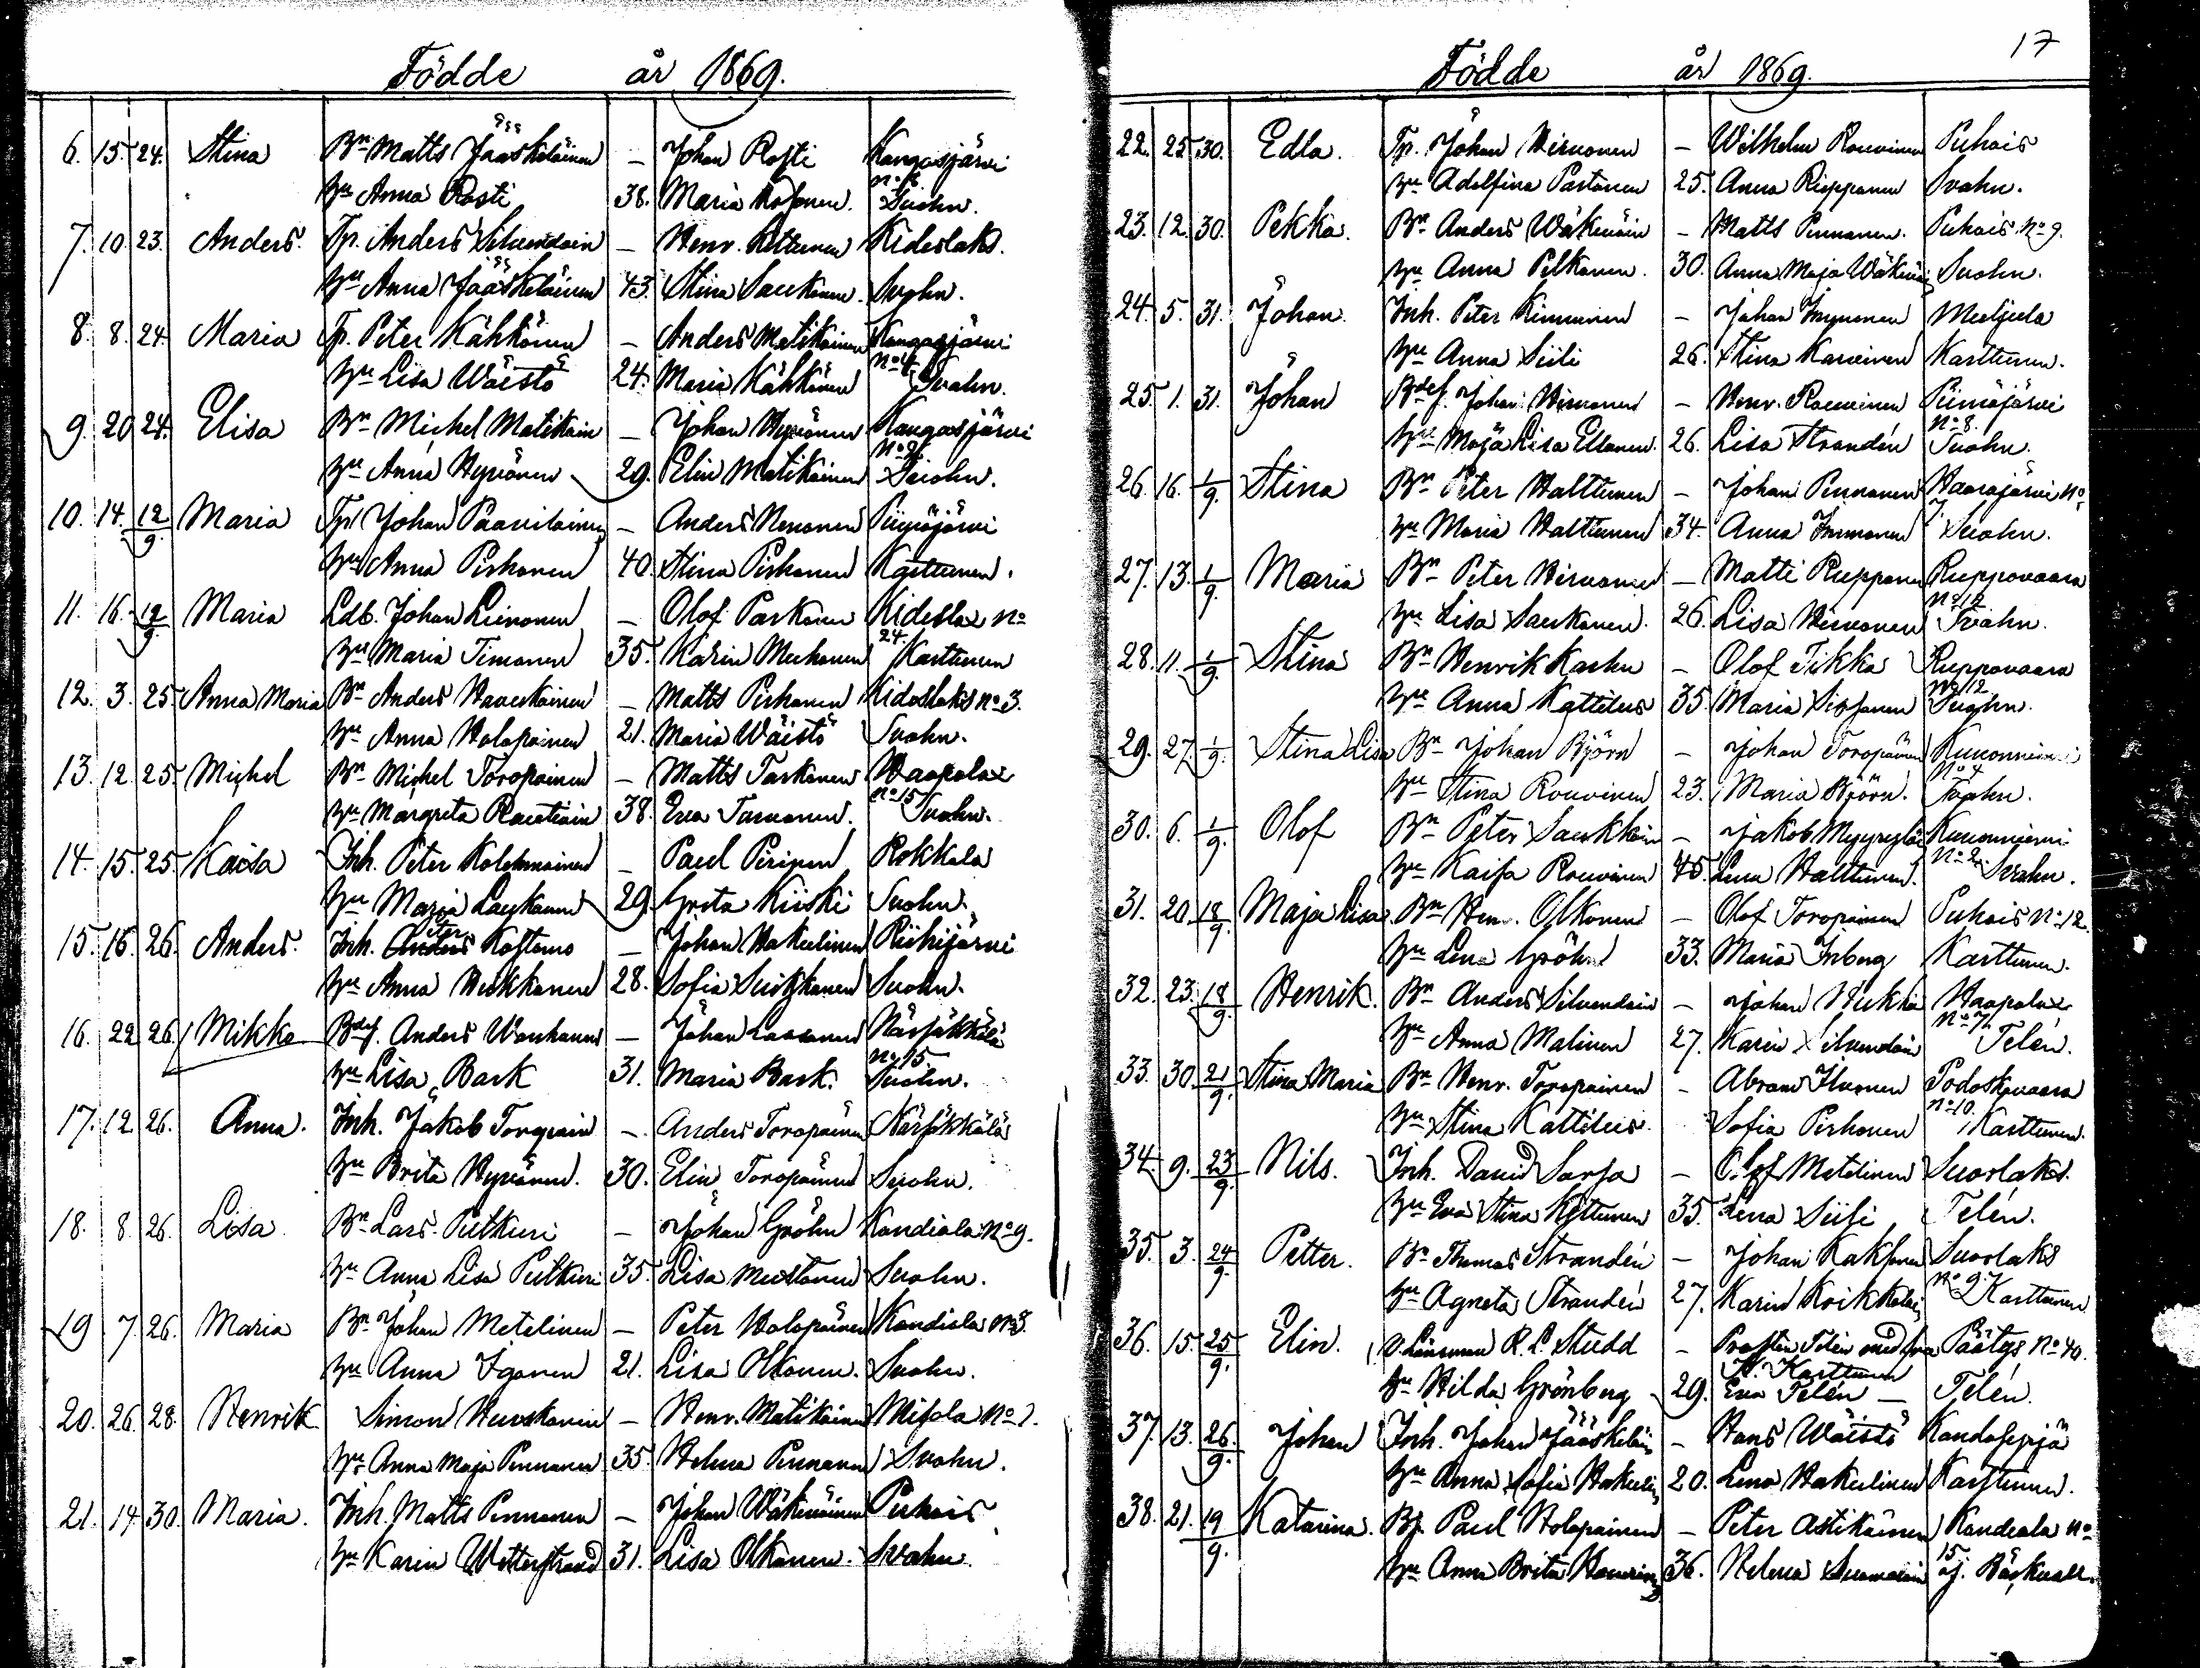 Födde år 1869.
6. 15. 24. Stina Bn Matts Jääskeläinen – Johan Rosti Kangasjärvi
hu Anna Rosti 38. Maria No 8. Svahn.
7. 10 23. Anders. Tp. Anders Silvendoin – Henr. Kettunen Kideslaks.
hu Anna Jääskeläinen 43. Stina Saukkonen. Svahn.
8. 8. 24. Maria Tp. Peter Kähkönen – Anders Matikainen Kangasjärvi
hu Lisa Wäistö 24. Maria Kähkönen No 4. Svahn.
9. 20 24. Elisa Bn Michel Matikain – Johan Hyvönen Kangasjärvi
hu Anna Hyvönen 29. Elin Matikainen No 2. Svahn.
10. 14. 12/9. Maria Tp. Johan Paavilainen – Anders Nenonen Piimäjärvi
hu Anna Pirhonen 40. Stina Pirhonen Karttunen.
11. 16. 19/9. Maria Ldb. Johan Leinonen – Olof Parkonen Kideslax No
hu Maria Timonen 35. Karin Meehonen 24. Karttunen
12. 3. 25. Anna Maria Bn Anders Haverkainen – Matts Pirhonen Kideslaks No 3.
hu Anna Holopainen 21. Maria Wäistö Svahn.
13. 12 25. Michel Bn Michel Toropainen – Matts Tarkonen Haapalax
hu Margreta Rautiain 38. Eva Tarvonen. No 15 Svahn.
14. 15. 25. Kaisa Inh. Peter Kolehmainen – Paul Pirinen Rokkala
hu Maria Laukkanen 29. Greta Kiiski Svahn.
15. 16. 26. Anders. Inh. Peter Kostamo – Johan Hakulinen Riihijärvi
hu Anna Heikkonen 28. Sofia Suikkanen Svahn.
16. 22 26. Mikko Bdef. Anders Wanhanen – Johan Lassanen Närsäkkälä
hu Lisa Bark 31. Maria Bark. No 15. Svahn.
17. 12 26. Anna. Inh. Jakob Toropain – Anders Toropainen Närsäkkälä
hu Brita Hyvönen. 30. Elin Toropainen Svahn.
18. 8. 26. Lisa Bn Lars Putkuri – Johan Gröhn Kandiala No 9.
hu Anna Lisa Putkuri 35. Lisa Mustonen Svahn.
19 7 26. Maria Bn Johan Metelinen – Peter Holopainen Kandiala No 3.
hu Anna Igonen 21. Lisa Olkonen. Svahn.
20. 26. 28. Henrik Simon Hurskainen – Henr. Matikainen Misola No 1.
hu Anna Maja Pennanen 35. Helena Pennanen Svahn.
21. 14. 30. Maria. Inh. Matts Pennanen – Johan Wäkeväinen Puhois
hu Karin Wetterstrand 31. Lisa Olkonen. Svahn.
17
Födde år 1869.
22. 25 30. Edla. Tp. Johan Hirvonen – Wilhelm Rouvinen Puhois
hu Adolfina Partanen 25. Anna Rieppanen Svahn.
23. 12. 30. Pekka. Bn Anders Wäkeväin – Matts Pennanen. Puhois No 9.
hu Anna Pelkonen. 30. Anna Maja Wäkeväin Svahn.
24. 5. 31. Johan. Inh. Peter Kinnunen – Johan Immonen
hu Anna Siili 26. Stina Karvinen Karttunen.
25. 1. 31. Johan Bdef. Johan Hirvonen – Henr. Rouvinen Piimäjärvi
hu Maja Lisa Ellonen. 26. Lisa Strandén No 8. Svahn.
26. 16. 1/9. Stina Bn Peter Halttunen – Johan Pennanen Haarajärvi No
hu Maria Halttunen 34. Anna Immonen 7 Svahn.
27. 13. 1/9. Maria Bn Peter Hirvonen – Matti Ruppone Ruppovaara
hu Lisa Saukkonen. 26. Lisa Hirvonen No 12 Svahn.
28. 11. 1/9. Stina Bn Henrik Karhu – Olof Tikka Ruppovaara
hu Anna Kattilus 35. Maria Sissonen No 12 Svahn.
29. 27. 1/9. Stina Lisa Bn Johan Björn – Johan Toropainen Kuuonniemi
hu Stina Rouvinen 23. Maria Björn. No 4 Svahn.
30. 6. 1/9. Olof Bn Peter Saukkoin – Jakob Myyryläi Kuuonniemi
hu Kaisa Rouvinen 45. Lena Halttunen. No 2. Svahn.
31. 20. 18/9. Maja Lisa Bn Henr. Olkonen – Olof Toropainen Puhois No 12.
hu Lena Gröhn 33. Maria Inberg Karttunen.
32. 23. 18/9. Henrik. Bn Anders Silvendoin – Johan Hukka Haapalax
hu Anna Malinen 27. Karin Silvendoin No 7. Telén.
33. 30. 21/9. Stina Maria Bn Henr. Toropainen – Abram Ihvonen Podoskavaara
hu Stina Kattilus Sofia Pirhonen No 10. Karttunen.
34. 9. 23/9. Nils. Inh. David Sarsa – Olof Metelinen Suorlaks.
hu Eva Stina Kettunen 35. Lena Siili Telén.
35. 3. 24/9. Petter. Bn Thomas Strandén – Johan Suorlaks
hu Agneta Strandén 27. Karin No 9. Karttunen
36. 15. 25/9. Elin. V. Länsman R. L. Studd – Prosten Telén med fru Päätys No 40.
hu Hilda Grönberg 29. H. Karttunen Eva Telén – Telén.
37. 13. 26/9. Johan Inh. Johan Jääskeläin – Hans Wäistö
hu Anna Sofia Hakulin 20. Lena Hakulinen Karttunen.
38. 21. 19/9. Katarina. Bf. Paul Holopainen – Peter Astikainen Kandiala No
hu Anna Brita 36. Helena 15 af.